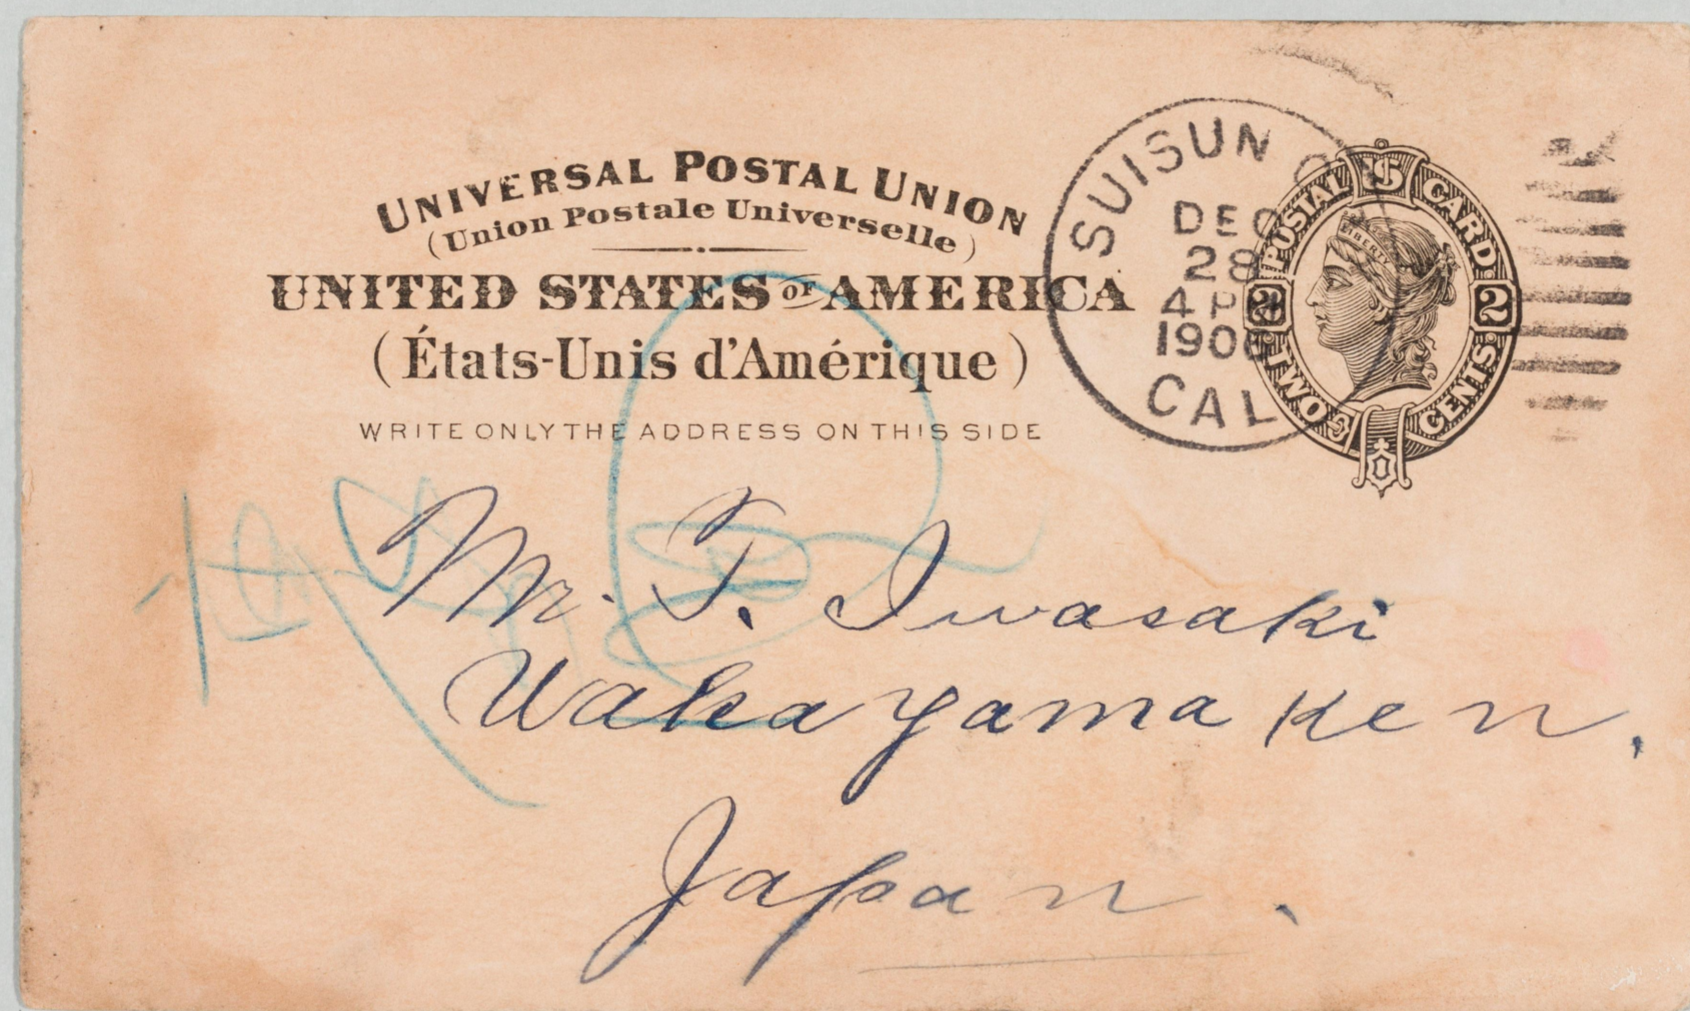 UNIVERSAL POSTAL UNION
(Union Postale Universelle)
UNITED STATES OF AMERICA
(États-Unis d'Amérique)
WRITE ONLY THE ADDRESS ON THIS SIDE
SUISUN
DEC
28
4 PM
190
CAL
POSTAL US CARD
LIBERTY
2 2
TWO CENTS
Mr. T. Iwasaki
Wakayama Ken.
Japan.